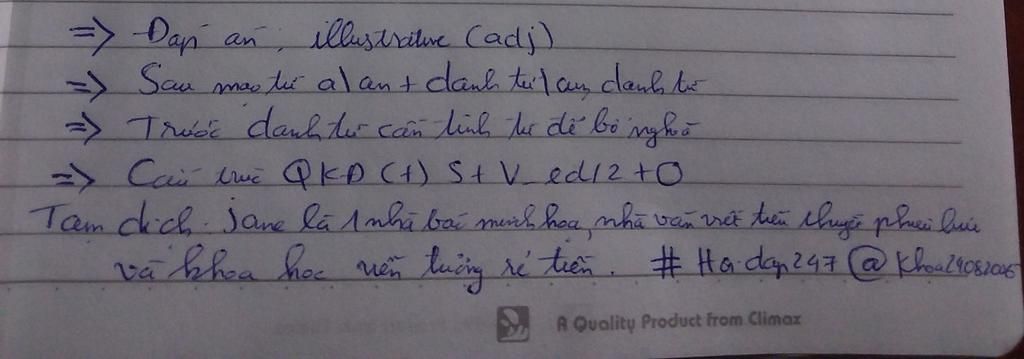 => Đáp án: illustrative (adj)
=> Sau mạo từ a/an + danh từ/cụm danh từ
=> Trước danh từ cần tính từ để bổ nghĩa
=> Cấu trúc QKD (+) S + V_ed/2 + O
Tạm dịch: Jane là 1 nhà báo minh hoạ, nhà văn viết tiểu thuyết phiêu lưu
và khoa học viễn tưởng rẻ tiền. # Hoidap247 @ Khoa29082006
A Quality Product from Climax